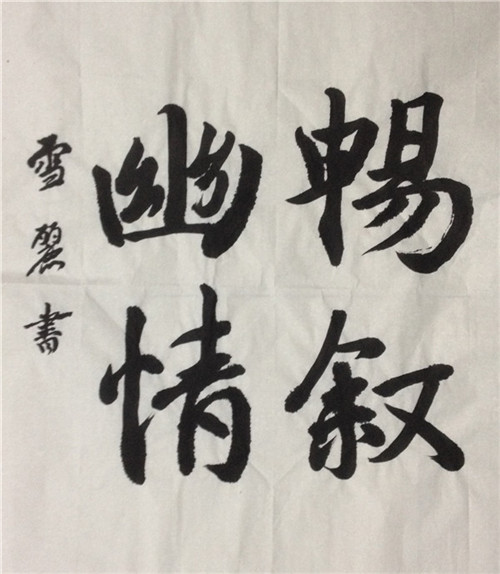 暢叙
幽情
雪麗書